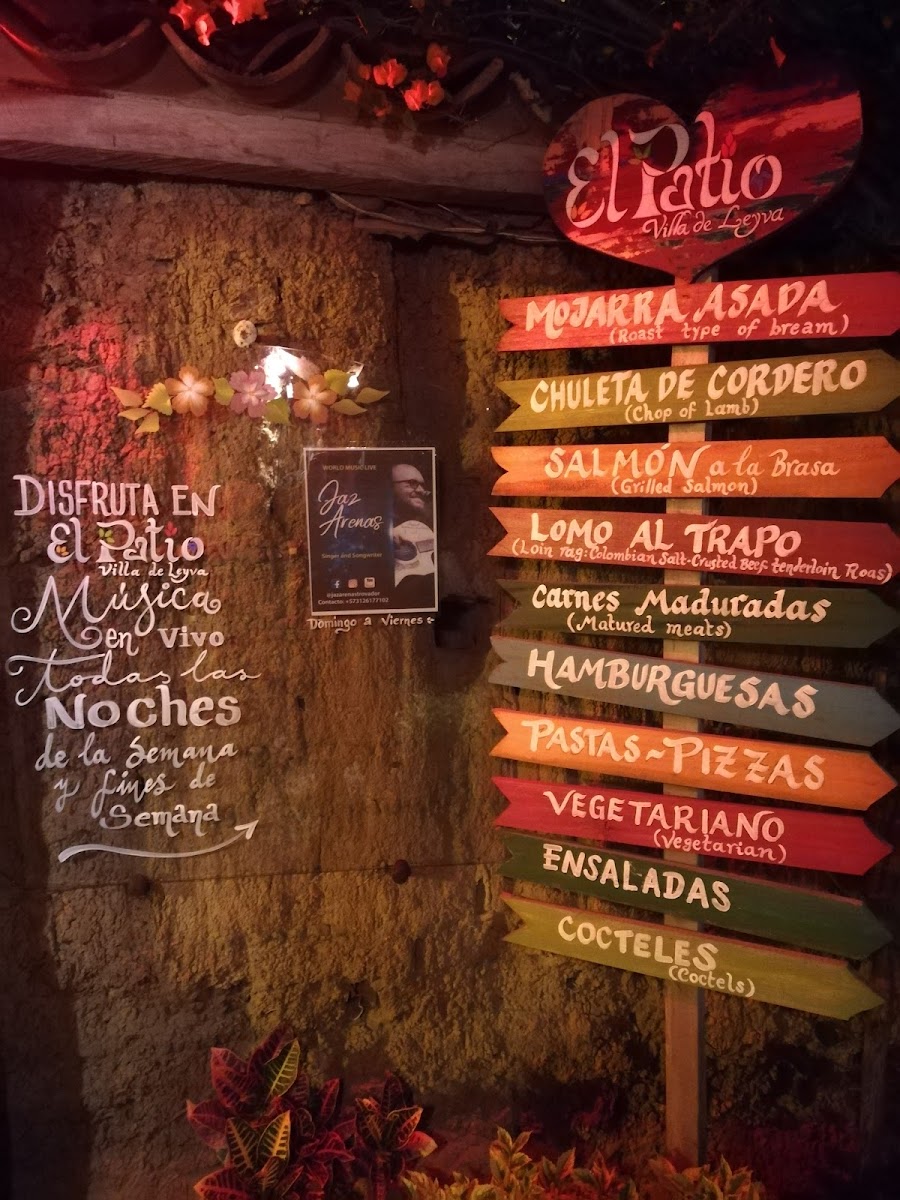 El Patio
Villa de Leyva
MOJARRA ASADA
(Roast type of bream)
CHULETA DE CORDERO
(Chop of Lamb)
SALMÓN a la Brasa
(Grilled Salmon)
LOMO AL TRAPO
(Loin rag: Colombian Salt-Crusted Beef tenderloin Roas)
Carnes Maduradas
(Matured meats)
HAMBURGUESAS
PASTAS~PIZZAS
VEGETARIANO
(Vegetarian)
ENSALADAS
COCTELES
(Coctels)
DISFRUTA EN
El Patio
Villa de Leyva
Música
en Vivo
Todas las
Noches
de la Semana
y fines de
Semana
WORLD MUSIC LIVE
Jaz
Arenas
Singer and Songwriter
Domingo a Viernes